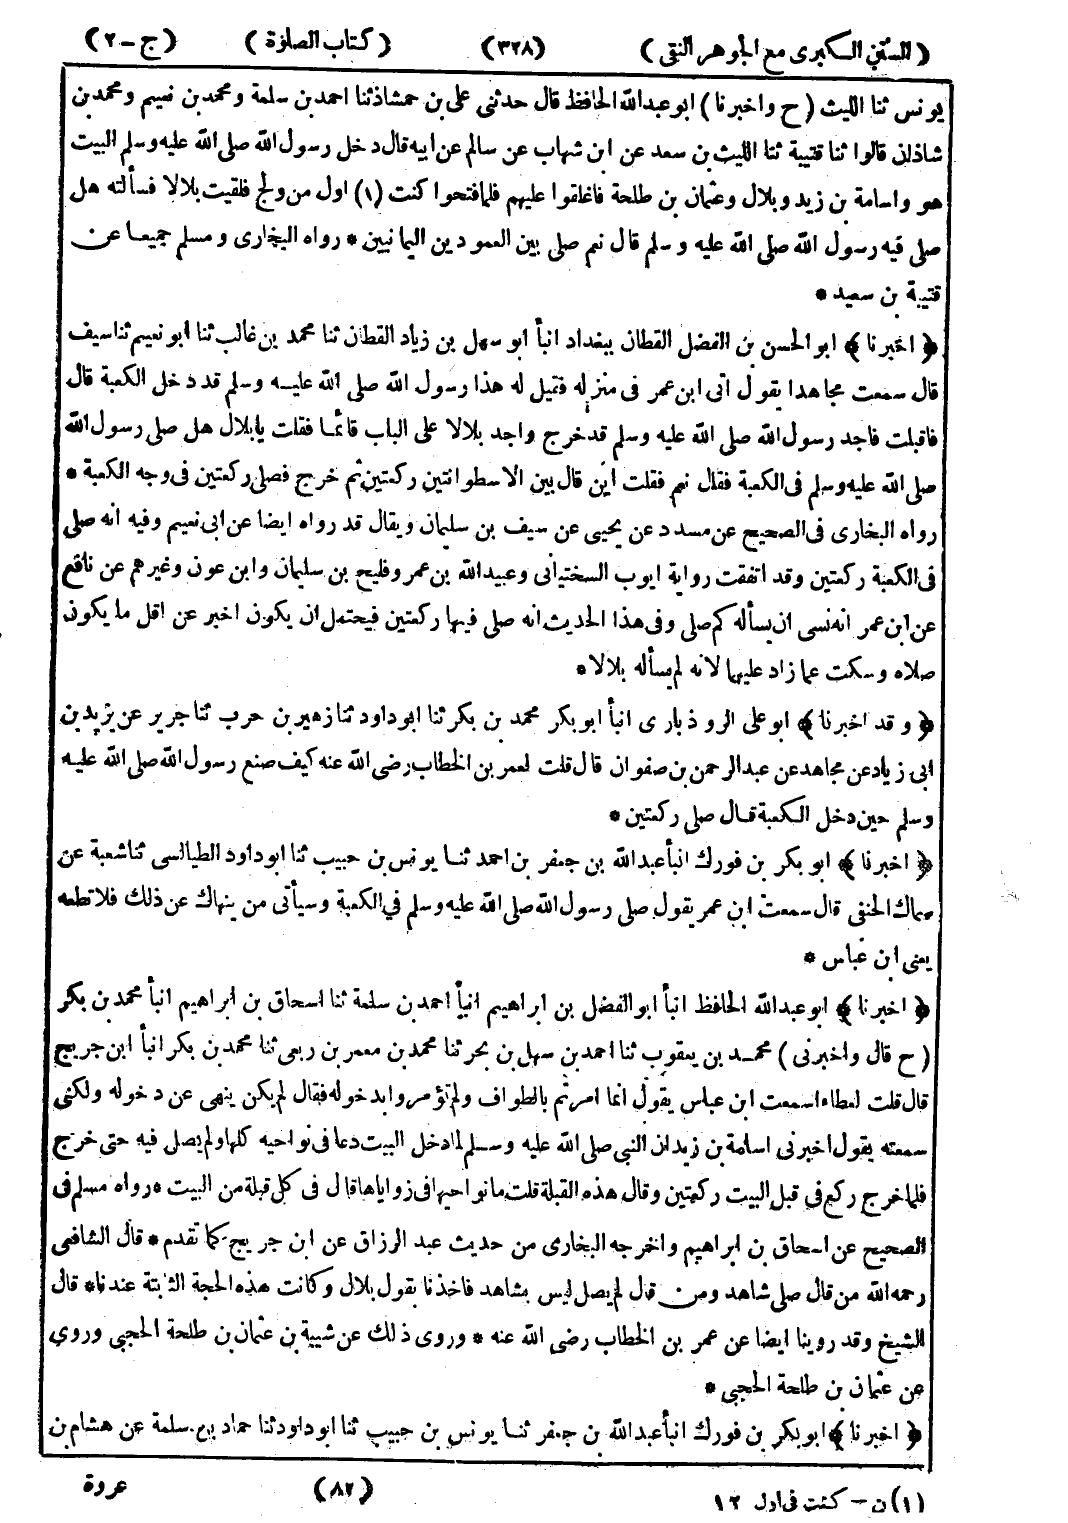 (السنن الكبرى مع الجوهر النقى) (٣٢٨) (كتاب الصلوٰة) (ج-٢)
يونس ثنا الليث (ح واخبرنا) ابو عبد الله الحافظ قال حدثنى على بن حمشاذ ثنا احمد بن سلمة ومحمد بن نعيم ومحمد بن
شاذان قالوا ثنا قتيبة ثنا الليث بن سعد عن ابن شهاب عن سالم عن ابيه قال دخل رسول الله صلى الله عليه وسلم البيت
هو واسامة بن زيد وبلال وعثمان بن طلحة فاغلقوا عليهم فلما فتحوا كنت (١) اول من ولج فلقيت بلالا فسألته هل
صلى فيه رسول الله صلى الله عليه وسلم قال نعم صلى بين العمودين اليمانيين * رواه البخارى ومسلم جميعا عن
قتيبة بن سعيد *
﴿اخبرنا﴾ ابو الحسن بن الفضل القطان ببغداد انبأ ابو سهل بن زياد القطان ثنا محمد بن غالب ثنا ابو نعيم ثنا سيف
قال سمعت مجاهدا يقول اتى ابن عمر فى منزله فقيل له هذا رسول الله صلى الله عليه وسلم قد دخل الكعبة قال
فاقبلت فاجد رسول الله صلى الله عليه وسلم قد خرج واجد بلالا على الباب قائما فقلت يا بلال هل صلى رسول الله
صلى الله عليه وسلم فى الكعبة فقال نعم فقلت اين قال بين الاسطوانتين ركعتين ثم خرج فصلى ركعتين فى وجه الكعبة *
رواه البخارى فى الصحيح عن مسدد عن يحيى عن سيف بن سليمان ويقال قد رواه ايضا عن ابى نعيم وفيه انه صلى
فى الكعبة ركعتين وقد اتفقت رواية ايوب السختيانى وعبيد الله بن عمر وفليح بن سليمان وابن عون وغيرهم عن نافع
عن ابن عمر انه نسى ان يسأله كم صلى وفى هذا الحديث انه صلى فيها ركعتين فيحتمل ان يكون اخبر عن اقل ما يكون
صلاه وسكت عما زاد عليهما لانه لم يسأله بلالا *
﴿وقد اخبرنا﴾ ابو على الروذبارى انبأ ابو بكر محمد بن بكر ثنا ابو داود ثنا زهير بن حرب ثنا جرير عن يزيد بن
ابى زياد عن مجاهد عن عبد الرحمن بن صفوان قال قلت لعمر بن الخطاب رضى الله عنه كيف صنع رسول الله صلى الله عليه
وسلم حين دخل الكعبة قال صلى ركعتين *
﴿اخبرنا﴾ ابو بكر بن فورك انبأ عبد الله بن جعفر بن احمد ثنا يونس بن حبيب ثنا ابو داود الطيالسى ثنا شعبة عن
سماك الحنفى قال سمعت ابن عمر يقول صلى رسول الله صلى الله عليه وسلم في الكعبة وسيأتى من ينهاك عن ذلك فلا تطعه
يعنى ابن عباس *
﴿اخبرنا﴾ ابو عبد الله الحافظ انبأ ابو الفضل بن ابراهيم انبأ احمد بن سلمة ثنا اسحاق بن ابراهيم انبأ محمد بن بكر
(ح قال واخبرنى) محمد بن يعقوب ثنا احمد بن سهل بن بحر ثنا محمد بن معمر بن ربعى ثنا محمد بن بكر انبأ ابن جريج
قال قلت لعطاء اسمعت ابن عباس يقول انما امرتم بالطواف ولم تؤمروا بدخوله فقال لم يكن ينهى عن دخوله ولكنى
سمعته يقول اخبرنى اسامة بن زيد ان النبى صلى الله عليه وسلم لما دخل البيت دعا فى نواحيه كلها ولم يصلى فيه حتى خرج
فلما خرج ركع فى قبل البيت ركعتين وقال هذه القبلة قلت ما نواحيها فى زواياها قال فى كل قبلة من البيت * رواه مسلم فى
الصحيح عن اسحاق بن ابراهيم واخرجه البخارى من حديث عبد الرزاق عن ابن جريج كما تقدم * قال الشافعى
رحمه الله من قال صلى شاهد ومن قال لم يصل ليس بشاهد فاخذنا بقول بلال وكانت هذه الحجة الثابتة عندنا * قال
الشيخ وقد روينا ايضا عن عمر بن الخطاب رضى الله عنه * وروى ذلك عن شيبة بن عثمان بن طلحة الحجبى وروي
عن عثمان بن طلحة الحجبى *
﴿اخبرنا﴾ ابو بكر بن فورك انبأ عبد الله بن جعفر ثنا يونس بن حبيب ثنا ابو داود ثنا حماد بن سلمة عن هشام بن
(١) ن - كنت فى اول ١٢ (٨٢) عروة